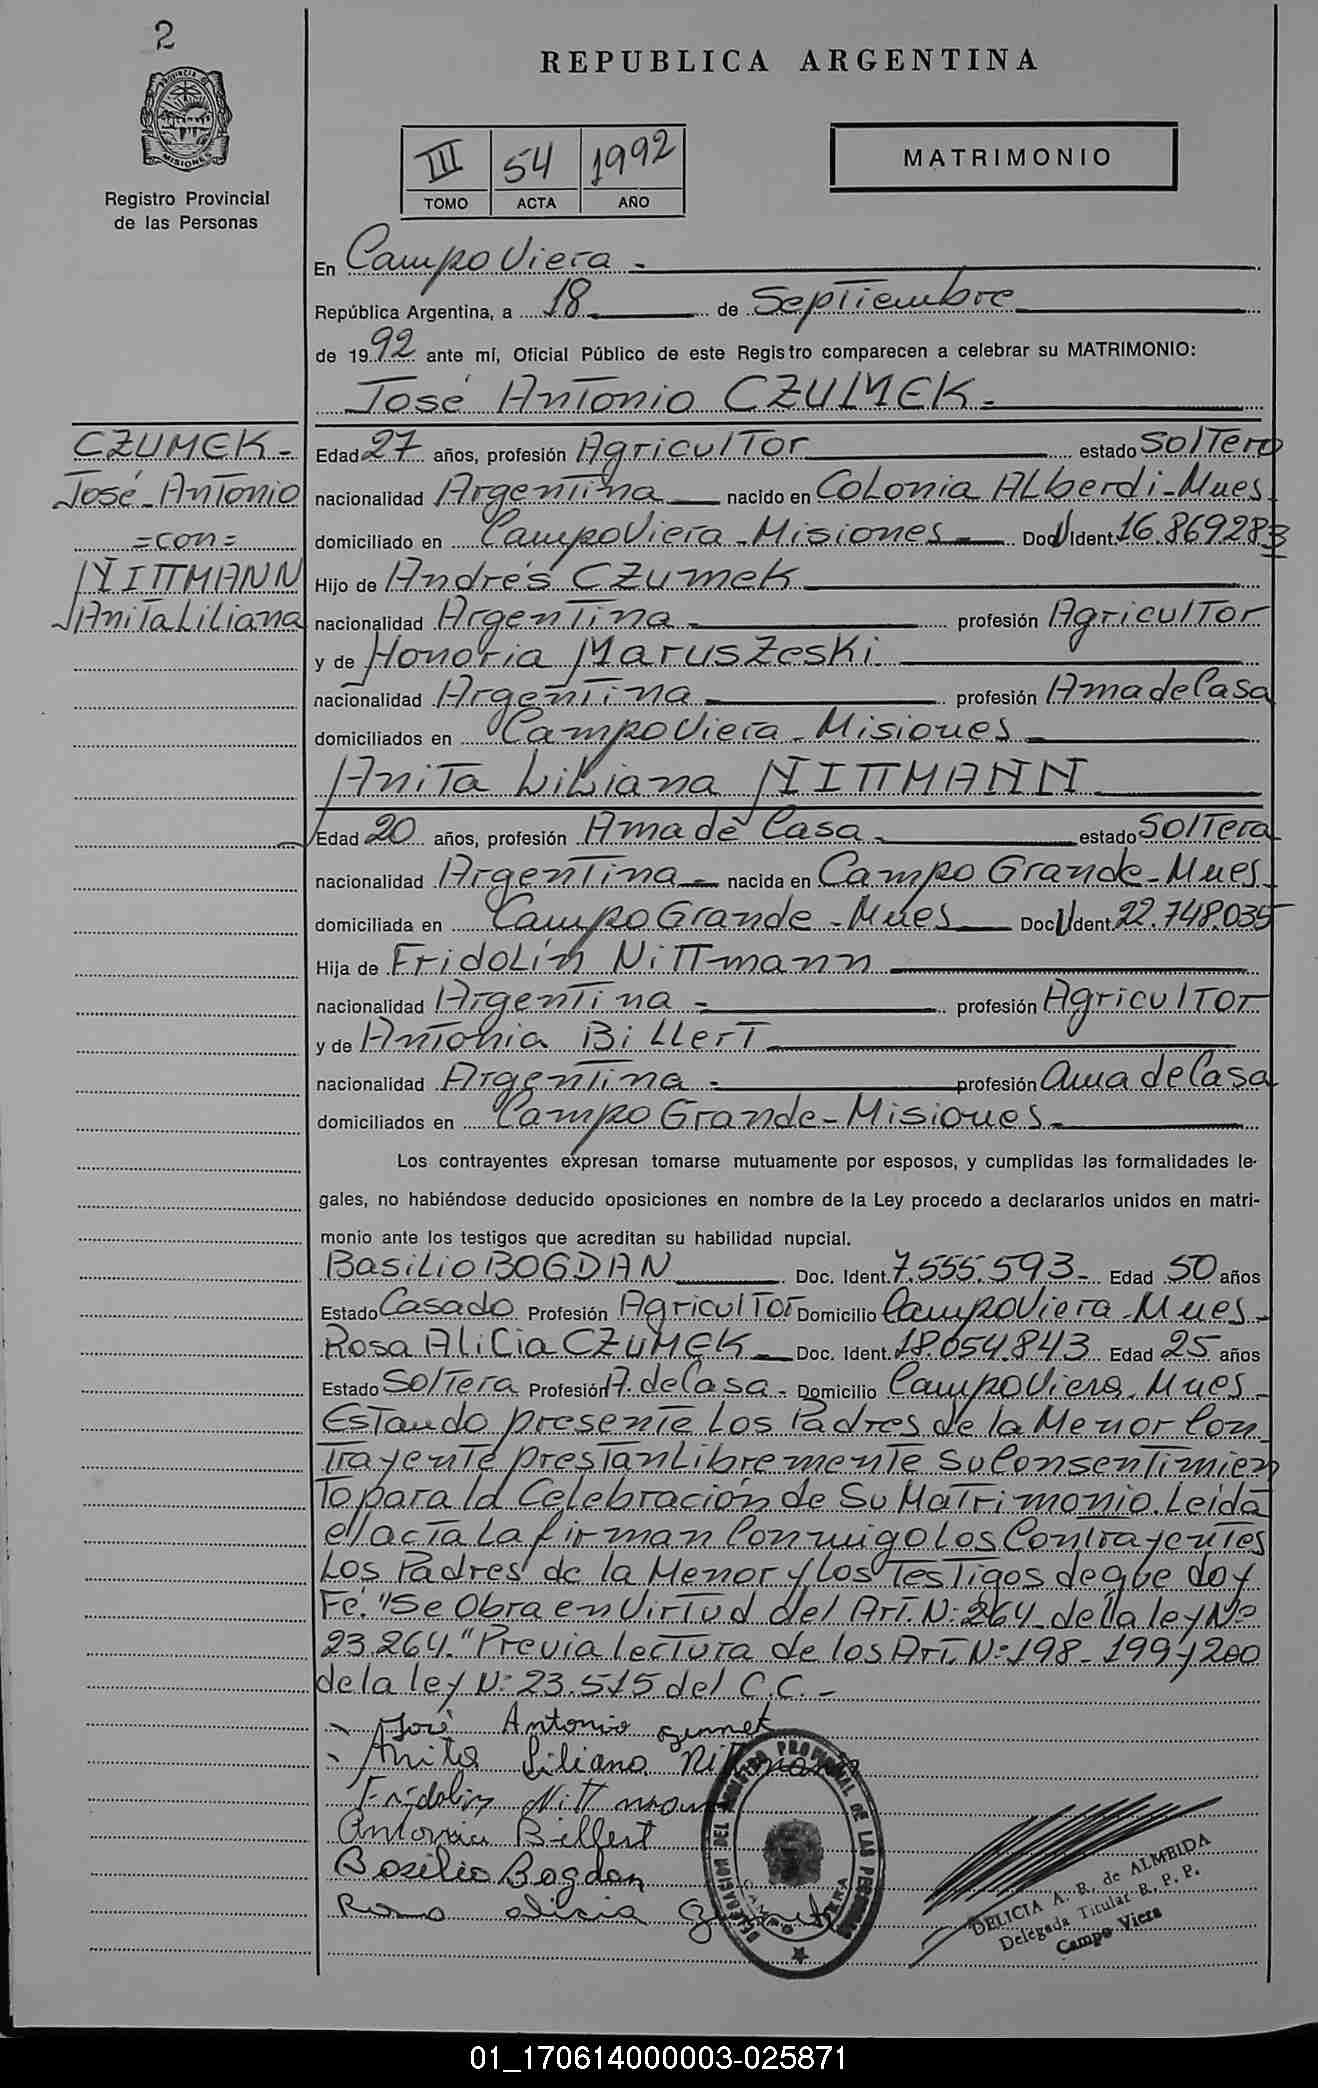 2
REPUBLICA ARGENTINA
PROVINCIA DE
MISIONES
III 54 1992
TOMO ACTA AÑO
MATRIMONIO
Registro Provincial
de las Personas
En Campo Viera.-
República Argentina, a 18 de Septiembre
de 1992 ante mí, Oficial Público de este Registro comparecen a celebrar su MATRIMONIO:
José Antonio CZUMEK.-
CZUMEK.-
José Antonio
=con=
NITTMANN
Anita Liliana
Edad 27 años, profesión Agricultor estado Soltero
nacionalidad Argentina nacido en Colonia Alberdi-Mnes.
domiciliado en Campo Viera-Misiones Doc. Ident. 16.869283
Hijo de Andrés Czumek
nacionalidad Argentina.- profesión Agricultor
y de Honoria Maruszeski
nacionalidad Argentina profesión Ama de Casa
domiciliados en Campo Viera-Misiones
Anita Liliana NITTMANN
Edad 20 años, profesión Ama de Casa.- estado Soltera
nacionalidad Argentina.- nacida en Campo Grande-Mnes.
domiciliada en Campo Grande-Mnes Doc. Ident. 22.748.035
Hija de Fridolín Nittmann
nacionalidad Argentina.- profesión Agricultor
y de Antonia Billert
nacionalidad Argentina.- profesión Ama de Casa
domiciliados en Campo Grande-Misiones.-
Los contrayentes expresan tomarse mutuamente por esposos, y cumplidas las formalidades le-
gales, no habiéndose deducido oposiciones en nombre de la Ley procedo a declararlos unidos en matri-
monio ante los testigos que acreditan su habilidad nupcial.
Basilio BOGDAN Doc. Ident. 7.555.593- Edad 50 años
Estado Casado Profesión Agricultor Domicilio Campo Viera-Mnes-
Rosa Alicia CZUMEK Doc. Ident. 18.054.843 Edad 25 años
Estado Soltera Profesión A. de Casa- Domicilio Campo Viera. Mnes-
Estando presente Los Padres de la Menor Con
Trayente prestan Libremente Su Consentimien
To para la Celebración de Su Matrimonio. Leída
el acta La firman Conmigo Los Contrayentes
Los Padres de la Menor y los Testigos de que doy
Fé. "Se Obra en Virtud del Art. Nº 264 de la ley Nº
23.264." Previa lectura de los Art. Nº 198-199 y 200
de la ley Nº 23.515 del C.C.-
José Antonio Czumek
Anita Liliana Nittmann
Fridolin Nittmann
Antonia Billert
Basilio Bogdan
Rosa Alicia Czumek
DELEGACION DEL REGISTRO PROVINCIAL DE LAS PERSONAS
CAMPO VIERA
DELICIA A. B. de ALMEIDA
Delegada Titular R. P. P.
Campo Viera
01_170614000003-025871